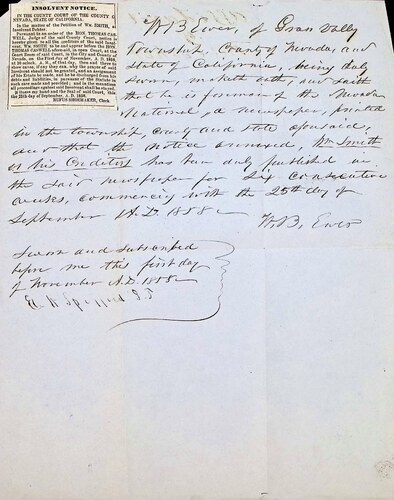 INSOLVENT NOTICE.
IN THE COUNTY COURT OF THE COUNTY OF
NEVADA, STATE OF CALIFORNIA.
In the matter of the Petition of WM. SMITH, an
Insolvent Debtor
Pursuant to an order of the HON. THOMAS CAS-
WELL, Judge of the said County Court, notice is
hereby given to all the creditors of the said Insol-
vent, WM. SMITH to be and appear before the HON.
THOMAS CASWELL aforesaid, in open Court, at the
Court Room of said Court, in the City and County of
Nevada, on the First day of November, A. D. 1858,
at 10 o'clock, A. M., of that day, then and there to
show cause, if any they can, why the prayer of said
Insolvent should not be granted, and an assignment
of his Estate be made, and he be discharged from his
debts and liabilities, in pursuance of the Statute in
such case made and provided; and in the meantime
all proceedings against said Insolvent shall be stayed.
Witness my hand and the Seal of said Court, this
the 25th day of September, A. D. 1858.
RUFUS SHOEMAKER, Clerk.
W B Ewer, of Grass Valley
Township, County of Nevada, and
State of California, being duly
sworn maketh oath, and saith
that he is foreman of the Nevada
National, a newspaper, printed
in the township, county and state aforesaid,
and that the notice annexed, Wm Smith
vs his Creditors has been duly published in
the said newspaper for Six consecutive
weeks, commencing with the 25th day of
September A.D. 1858
W. B. Ewer
Sworn and subscribed
before me this first day
of November A.D. 1858